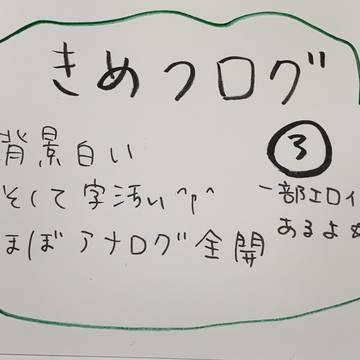 きめつログ
③
背景白い
そして字汚い^p^
ほぼアナログ全開
一部エロイ
あるよ